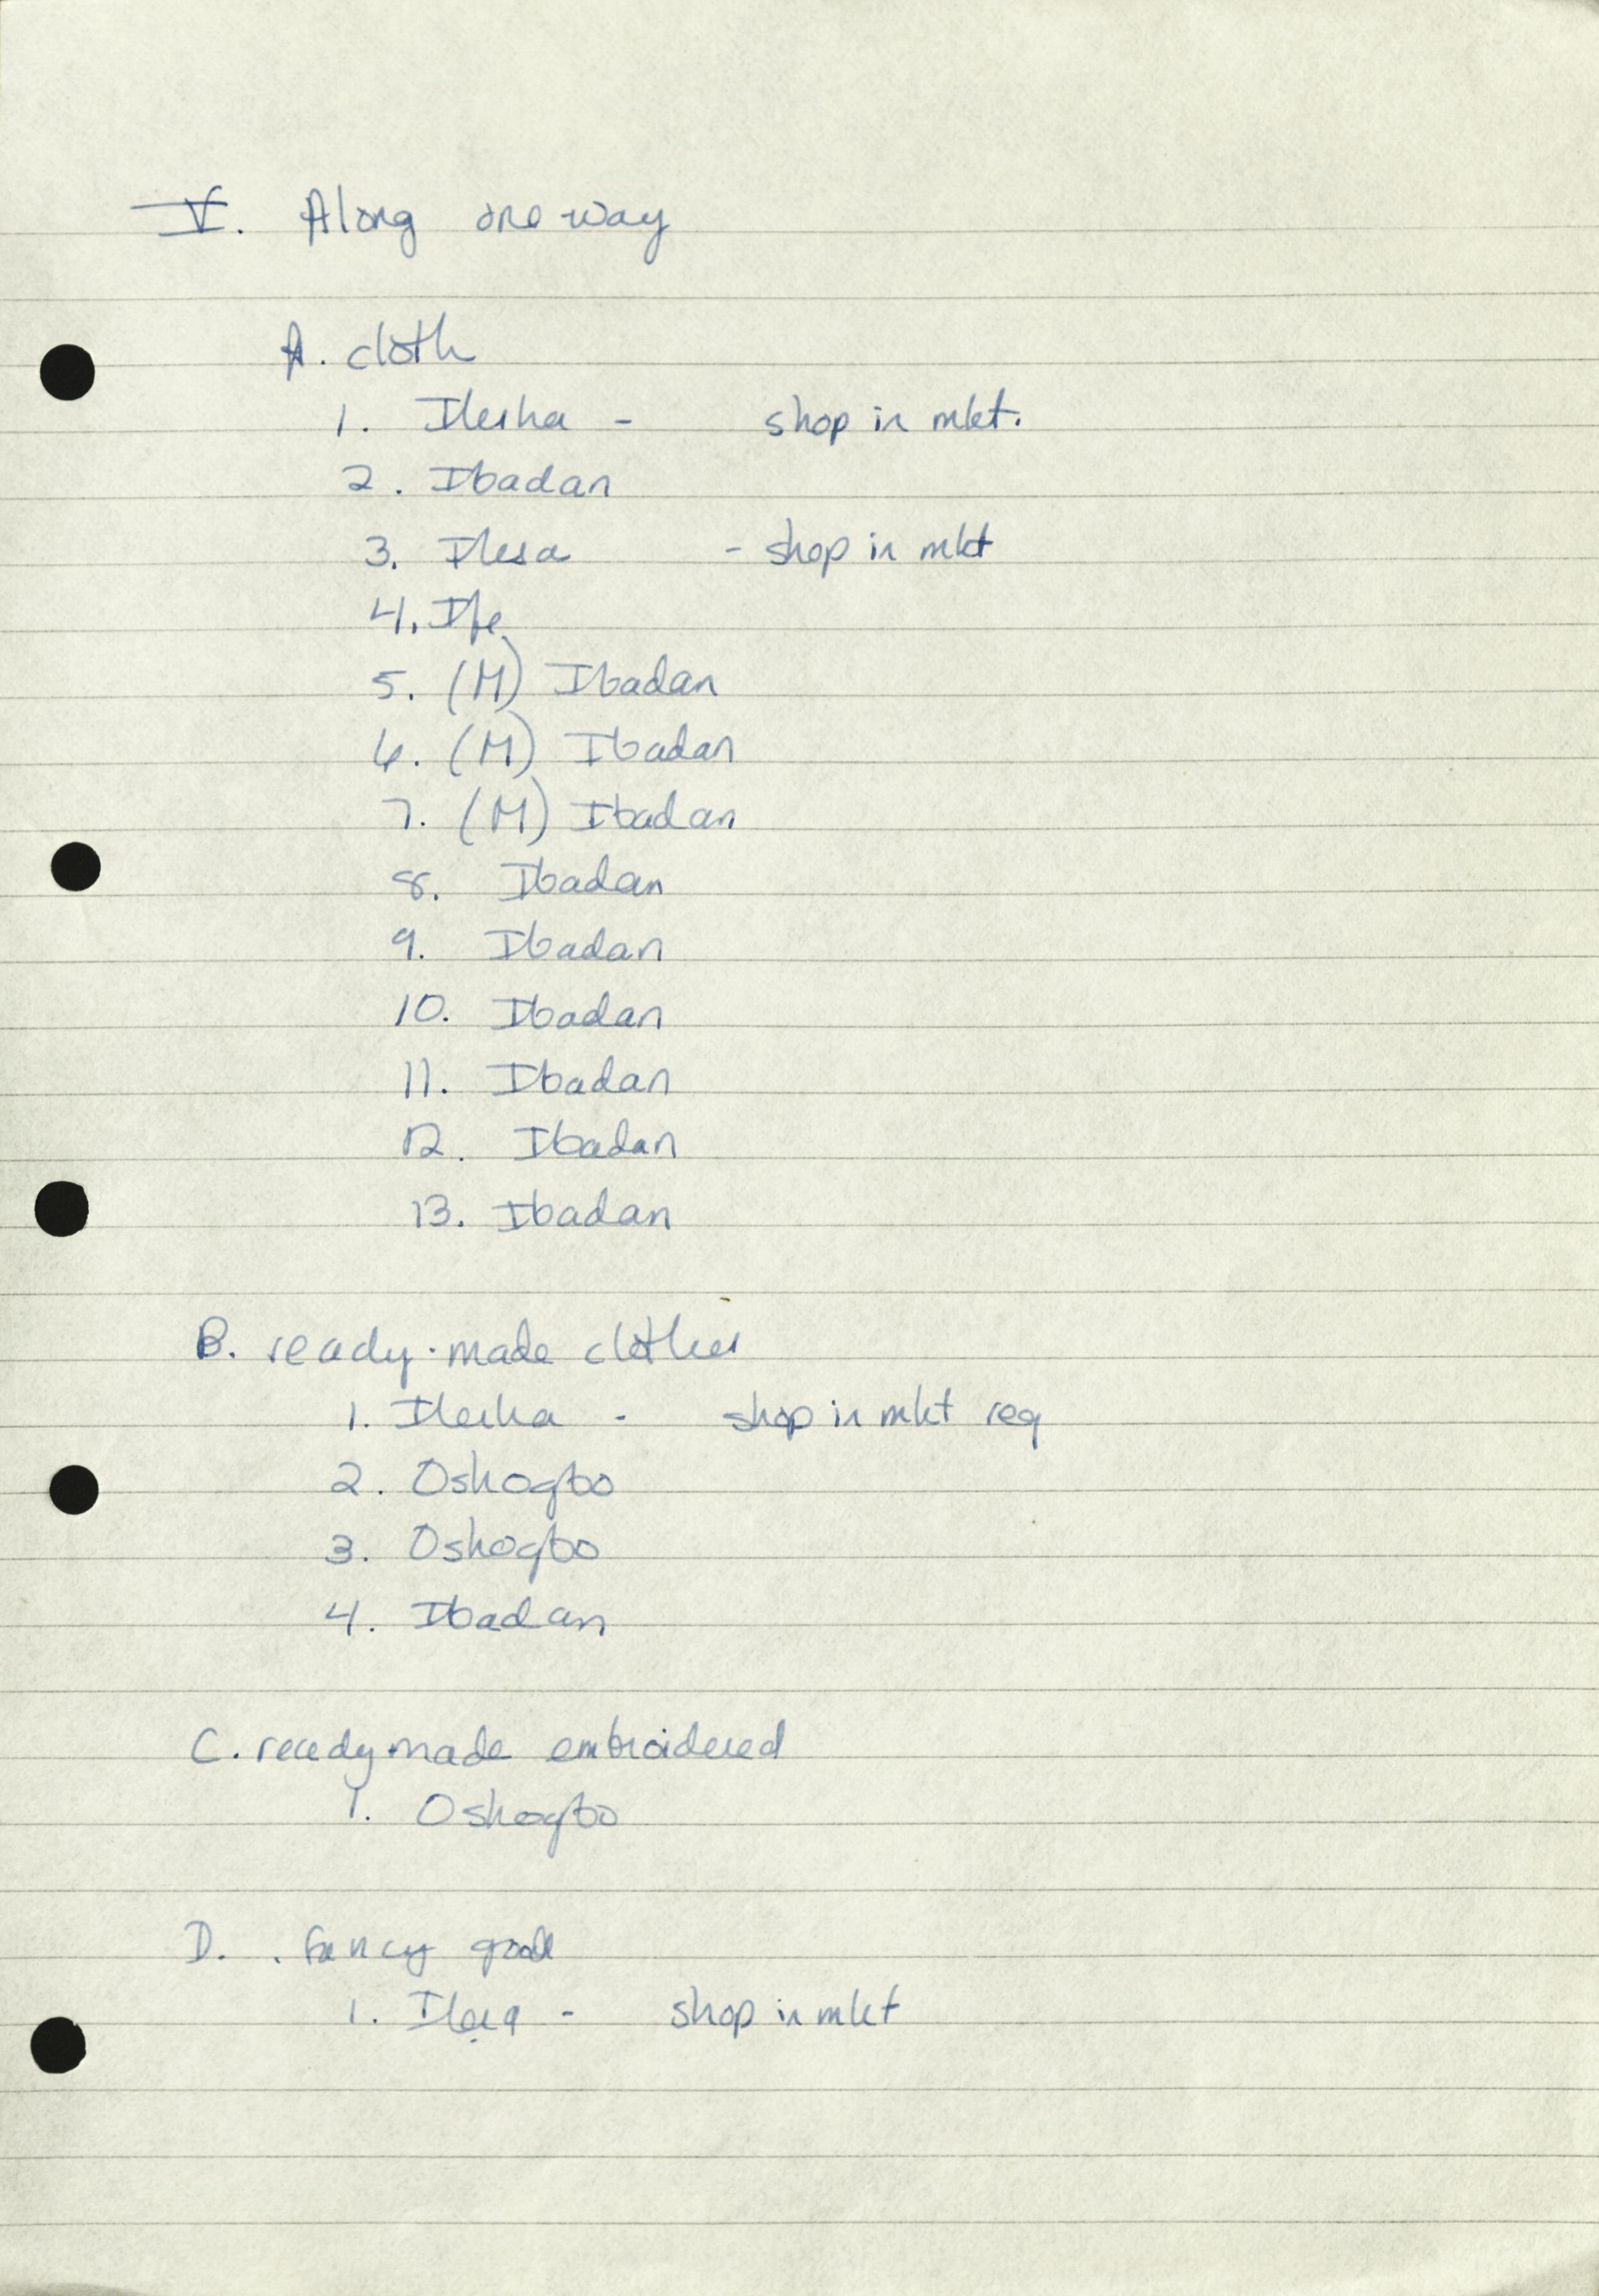 V. Along one-way
A. cloth
1. Ilesha - shop in mkt.
2. Ibadan
3. Ilesa - shop in mkt
4. Ife
5. (M) Ibadan
6. (M) Ibadan
7. (M) Ibadan
8. Ibadan
9. Ibadan
10. Ibadan
11. Ibadan
12. Ibadan
13. Ibadan
B. ready-made clothes
1. Ilesha - shop in mkt req
2. Oshogbo
3. Oshogbo
4. Ibadan
C. ready-made embroidered
1. Oshogbo
D. . fancy good
1. Ilesa - shop in mkt